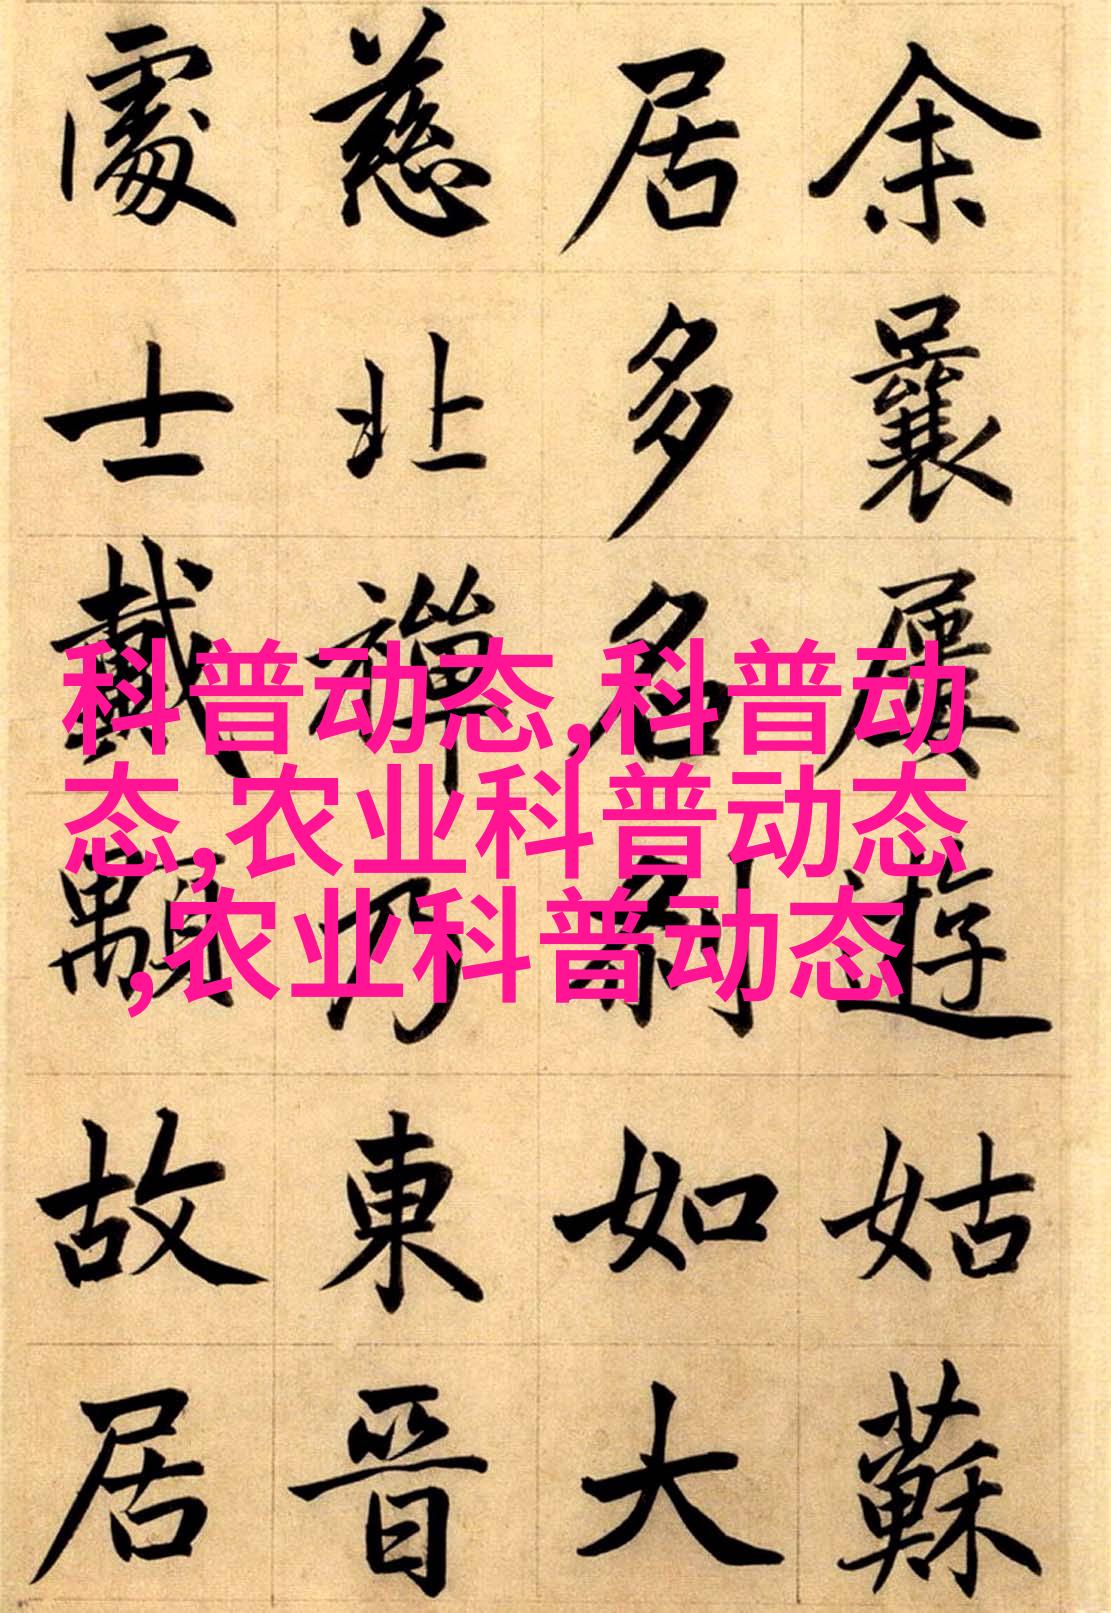 余曩屢遊姑蘇
居多名刹如大
慈北禪乃東晉
處士戴顒故居
科普动态,科普动
态,农业科普动态
,农业科普动态